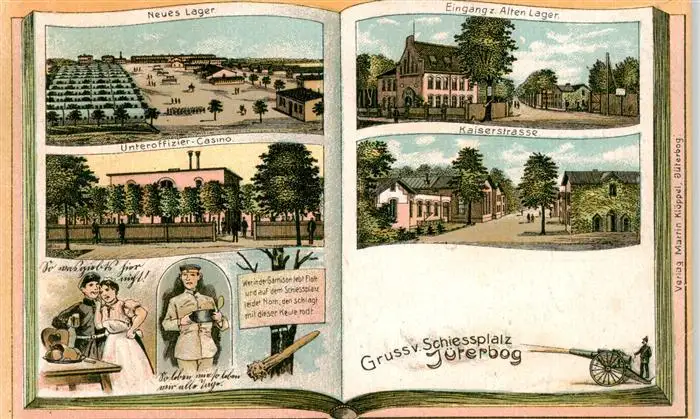 Neues Lager.
Unteroffizier-Casino.
So was giebts hier
nicht!
So leben wir so leben
wir alle Tage.
Wer in der Garnison lebt Flott
und auf dem Schiessplatz
leidet Noth, den schlagt
mit dieser Keule todt.
Eingang z. Alten Lager.
Kaiserstrasse
Gruss v. Schiessplatz
Jüterbog
Verlag Martin Klöppel, Jüterbog.